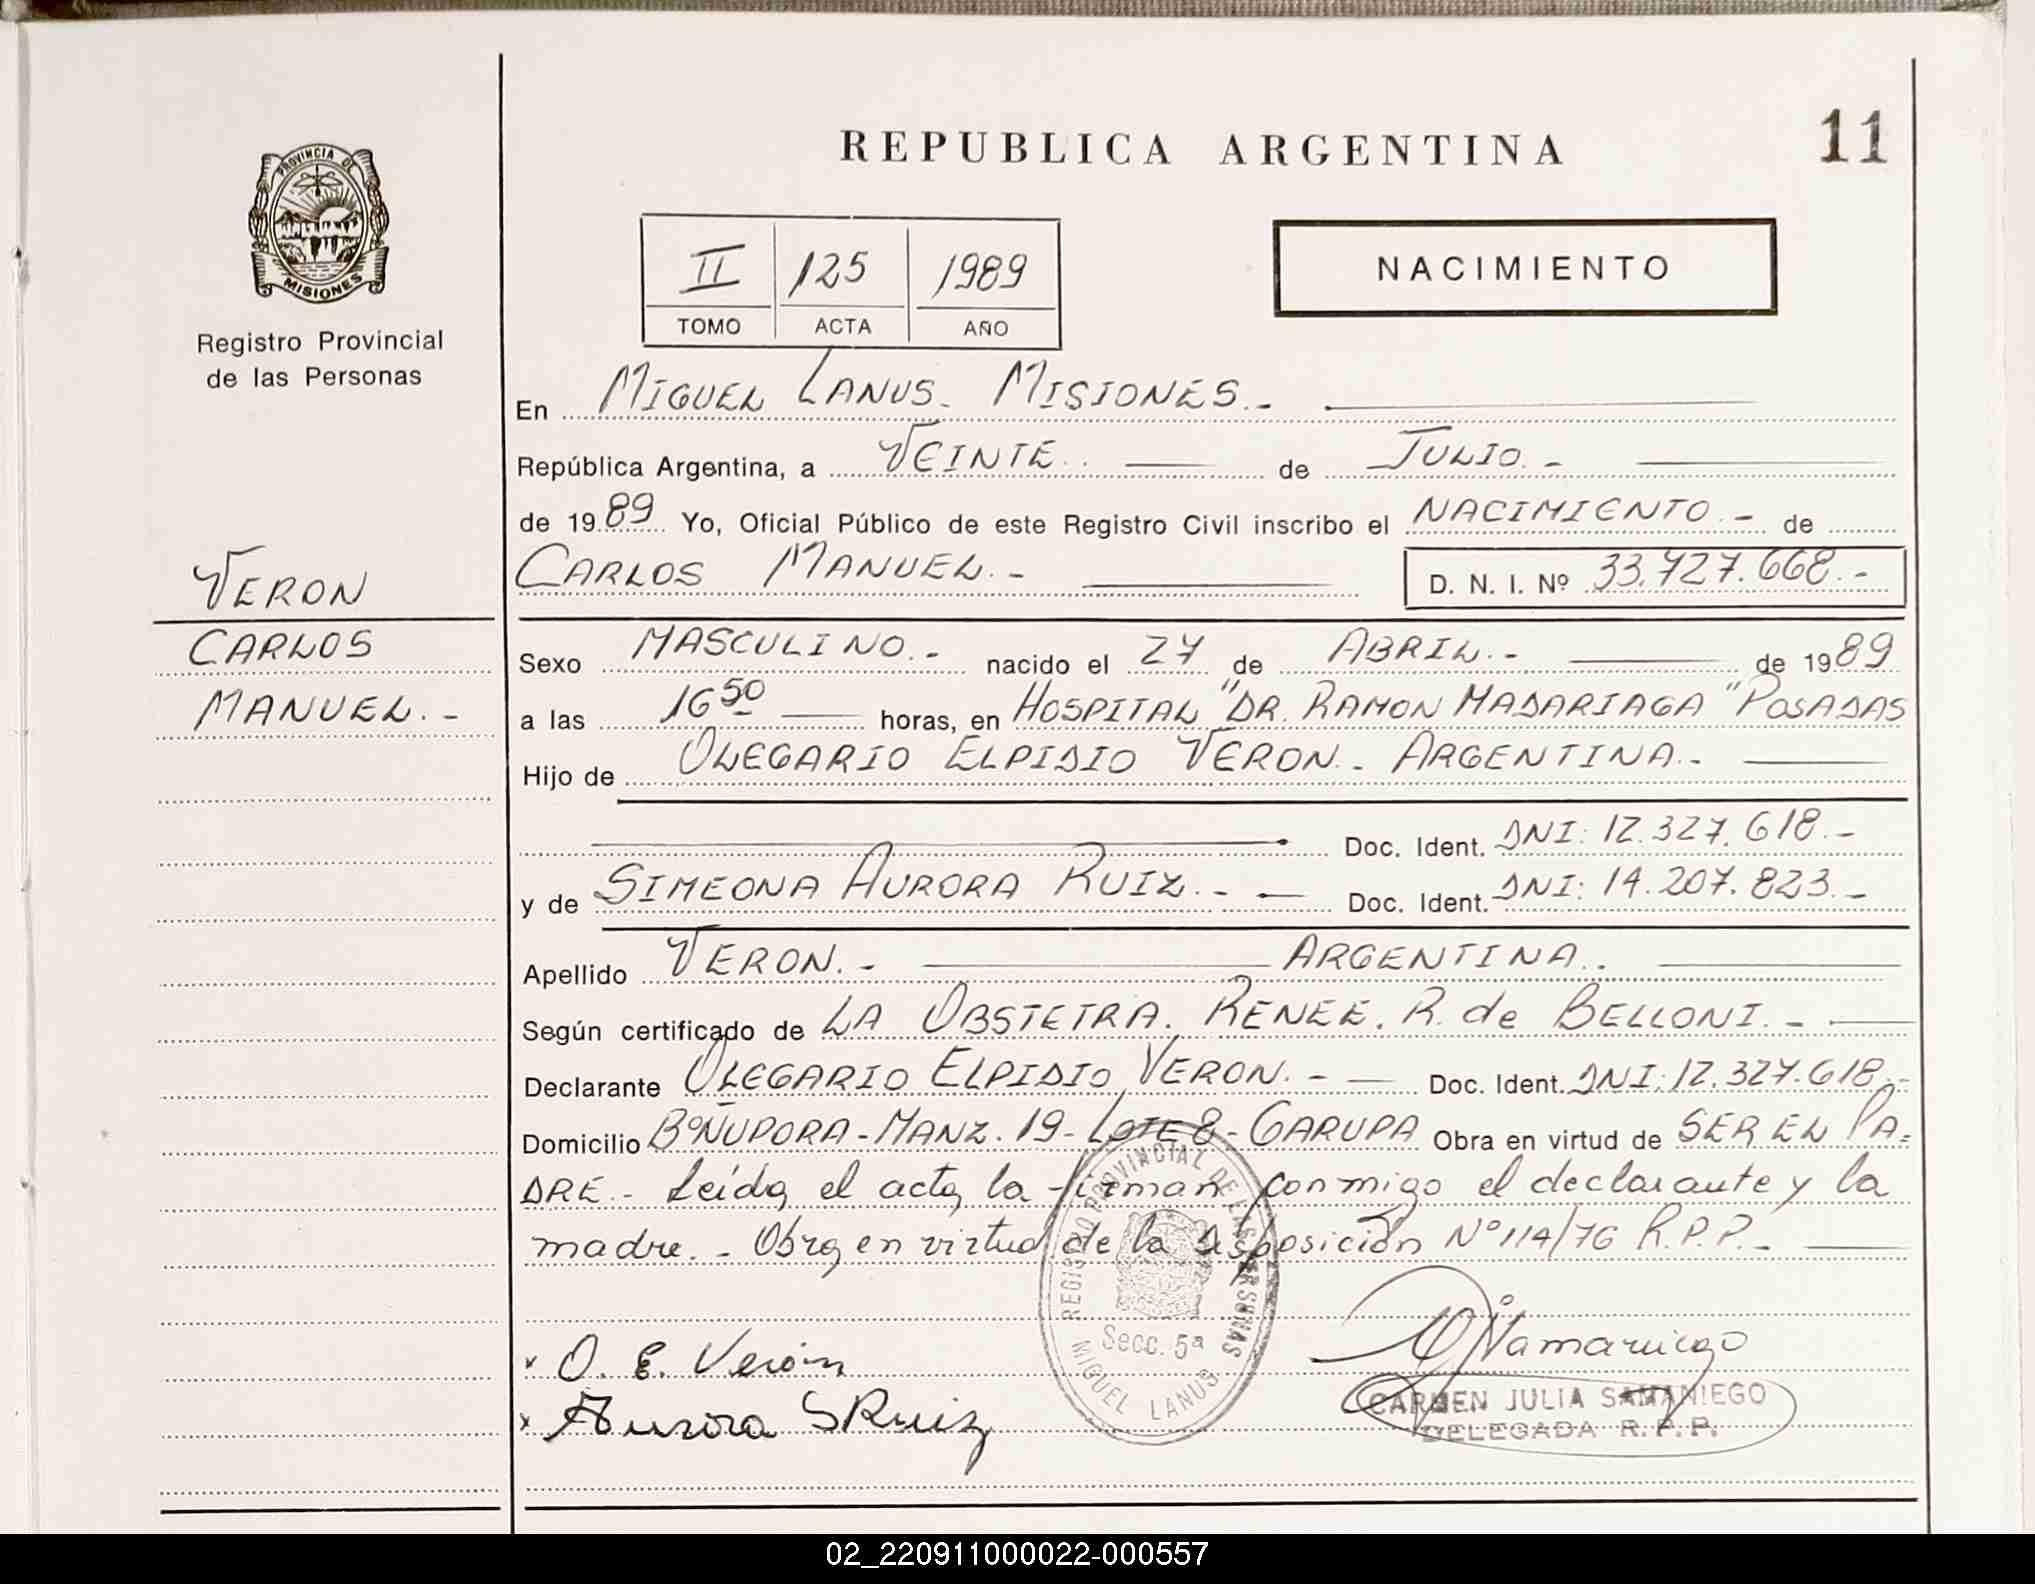 REPUBLICA ARGENTINA
11
PROVINCIA DE
MISIONES
Registro Provincial
de las Personas
II 125 1989
TOMO ACTA AÑO
NACIMIENTO
En MIGUEL LANUS. MISIONES.-
República Argentina, a VEINTE. de JULIO.-
de 1989 Yo, Oficial Público de este Registro Civil inscribo el NACIMIENTO.- de
CARLOS MANUEL.- D. N. I. Nº 33.727.668.-
VERON
CARLOS
MANUEL.-
Sexo MASCULINO.- nacido el 27 de ABRIL.- de 1989
a las 16 50 horas, en HOSPITAL "DR. RAMON MADARIAGA" POSADAS
Hijo de OLEGARIO ELPIDIO VERON. ARGENTINA.-
Doc. Ident. DNI: 12.327.618.-
y de SIMEONA AURORA RUIZ.- Doc. Ident. DNI: 14.207.823.-
Apellido VERON.- ARGENTINA.
Según certificado de LA OBSTETRA. RENEE. R. de BELLONI.-
Declarante OLEGARIO ELPIDIO VERON.- Doc. Ident. DNI: 12.327.618.-
Domicilio Bº ÑUPORA-MANZ. 19-LOTE 8-GARUPA Obra en virtud de SER EL PA=
DRE.- Leída el acta, la firman conmigo el declarante y la
madre.- Obra en virtud de la disposición Nº 114/76 R.P.P.-
REGISTRO PROVINCIAL DE LAS PERSONAS
Secc. 5ª
MIGUEL LANUS
x O. E. Verón
x Aurora S Ruiz
CARMEN JULIA SAMANIEGO
DELEGADA R. P. P.
02_220911000022-000557